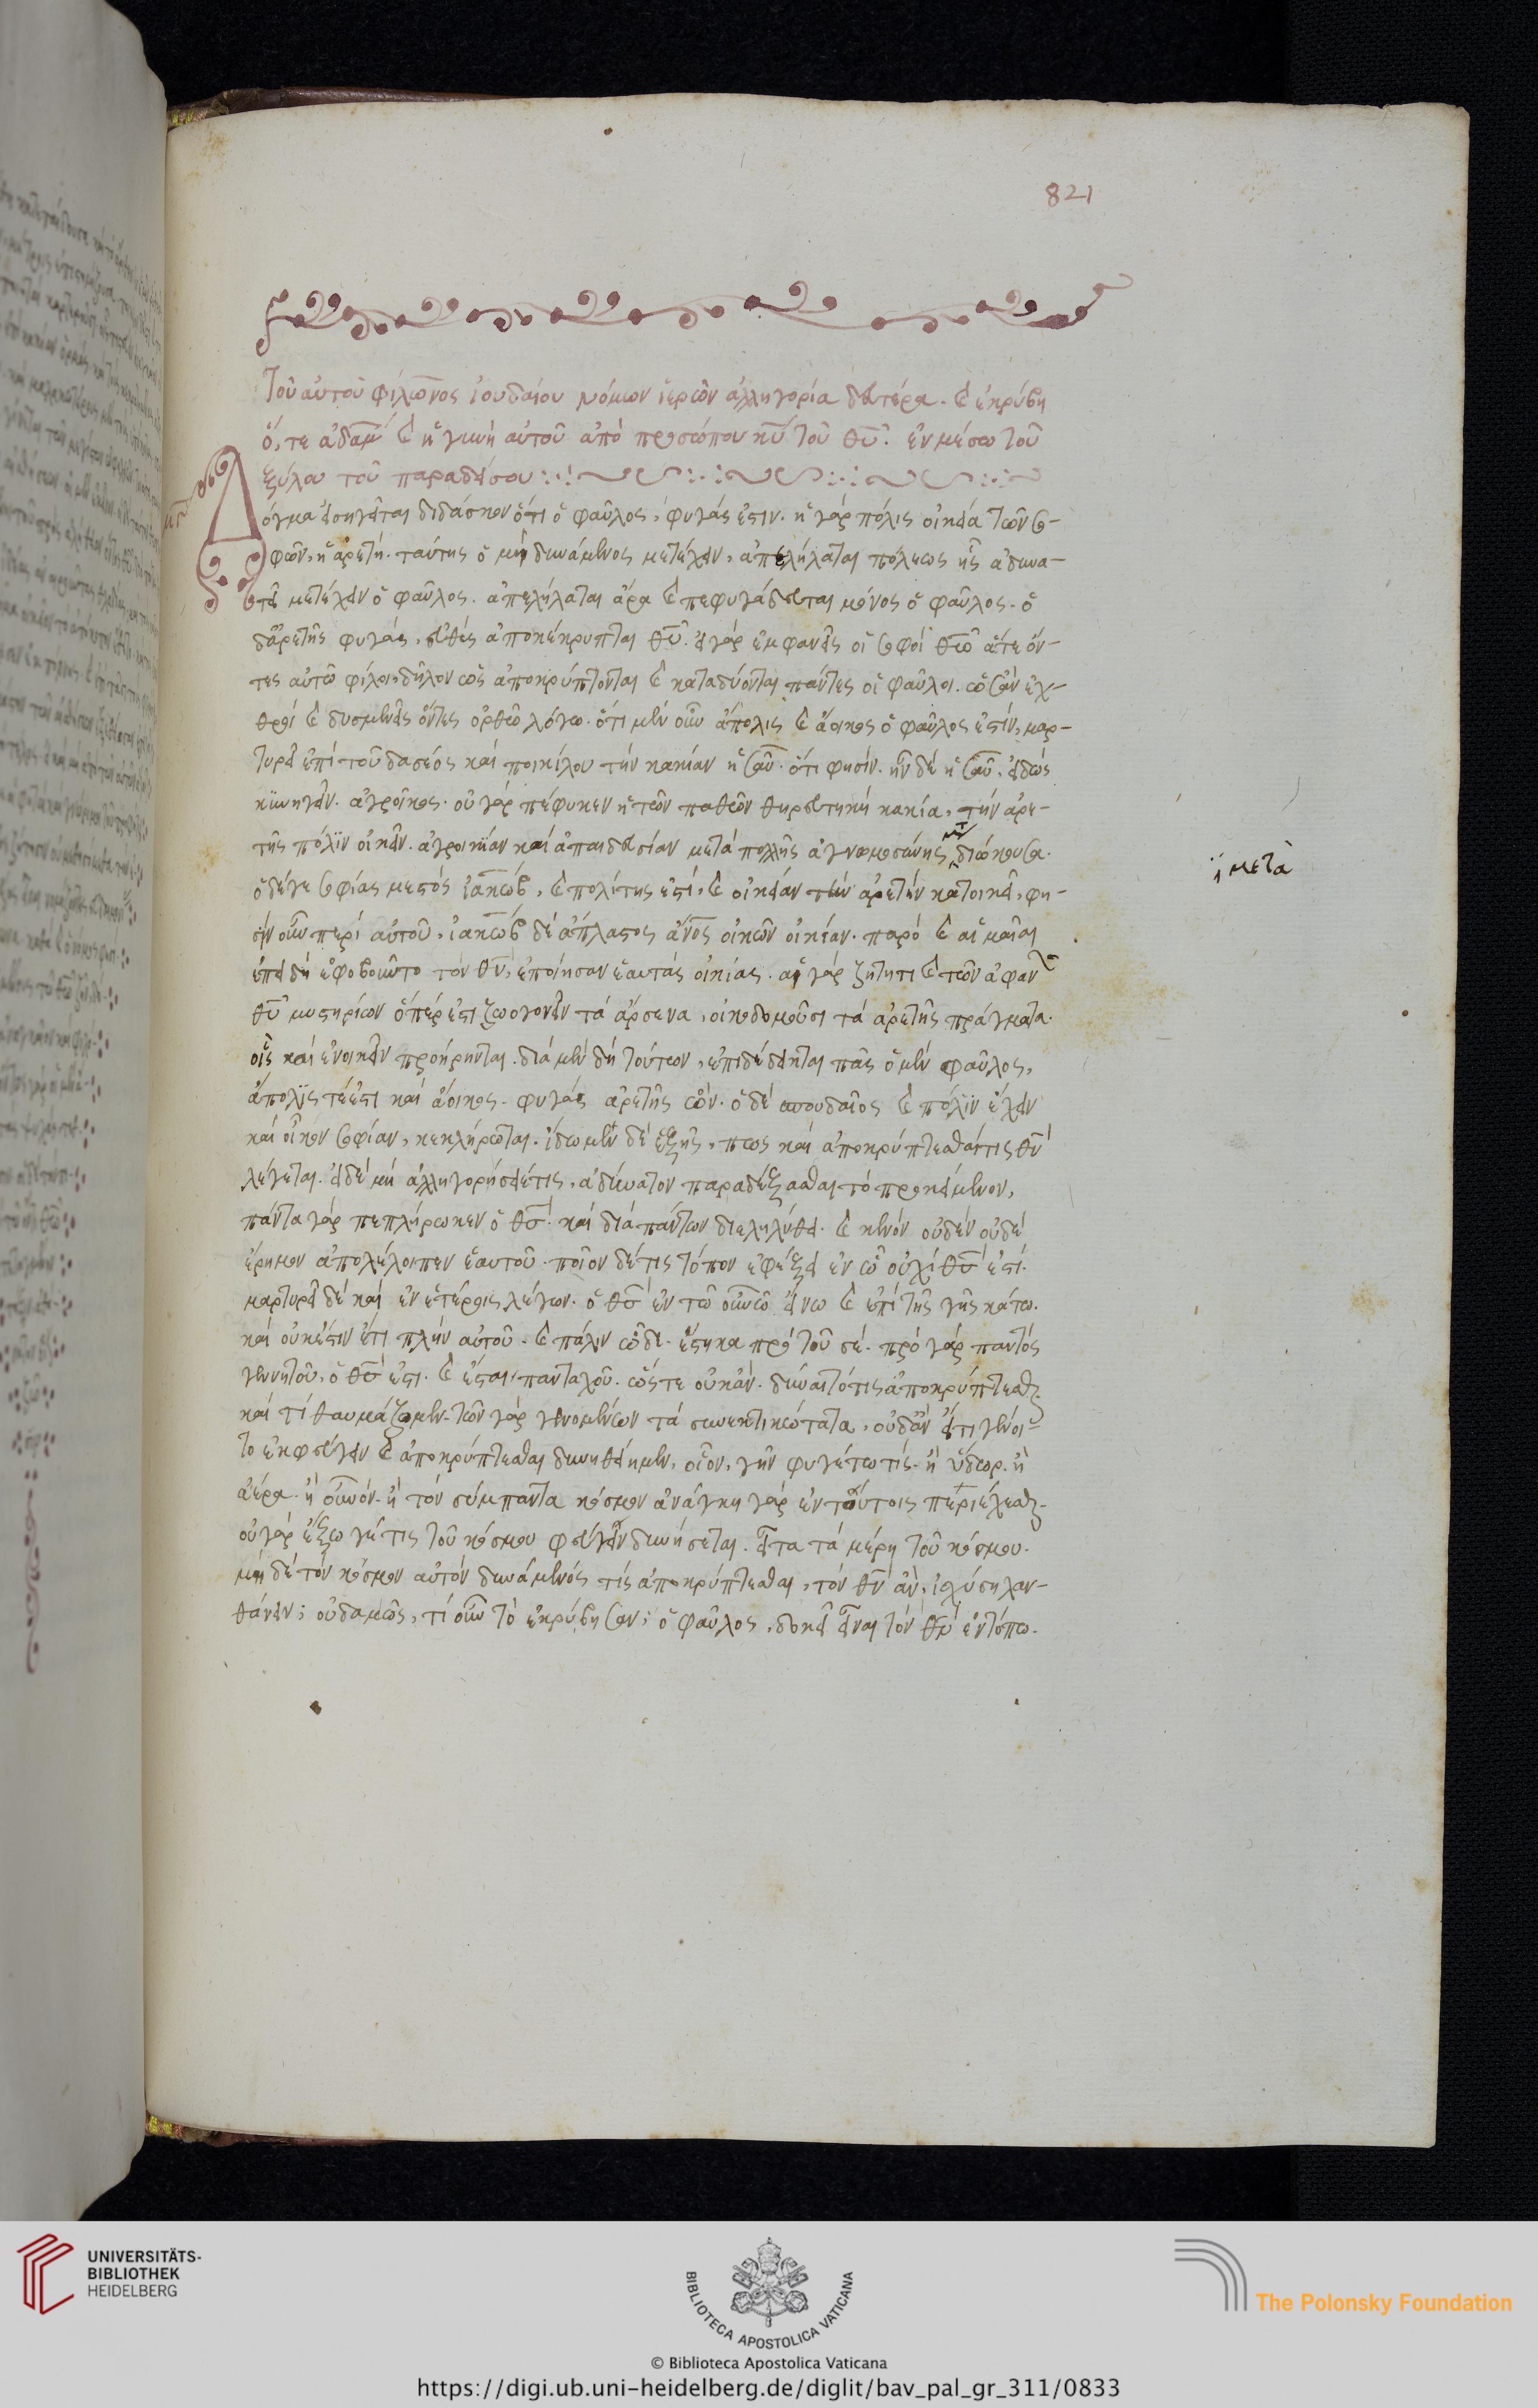 821
Τοῦ αὐτοῦ φίλωνος ἰουδαίου νόμων ἱερῶν ἀλληγορία δευτέρα. καὶ ἐκρύβη
ὅ, τε ἀδαμ καὶ ἡ γυνὴ αὐτοῦ ἀπὸ προσώπου κυ τοῦ θυ. ἐν μέσω τοῦ
ξύλου τοῦ παραδείσου
Δόγμα εἰσηγεῖται διδάσκον ὅτι ὁ φαῦλος, φυγάς ἐστιν. ἡ γὰρ πόλις οἰκεία τῶν σο-
φῶν, ἡ ἀρετή. ταύτης ὁ μὴ δυνάμενος μετέχειν, ἀπελήλαται πόλεως ἧς ἀδυνα-
τεῖ μετέχειν ὁ φαῦλος. ἀπελήλαται ἄρα καὶ πεφυγάδευται μόνος ὁ φαῦλος. ὁ
δ' ἀρετῆς φυγάς, εὐθὺς ἀποκέκρυπται θυ. εἰ γὰρ ἐμφανεῖς οἱ σοφοὶ θω ἅτε ὄν-
τες αὐτῶ φίλοι, δῆλον ὡς ἀποκρύπτονται καὶ καταδύονται πάντες οἱ φαῦλοι. ὡσὰν ἐχ-
θροὶ καὶ δυσμενεῖς ὄντες ὀρθῶ λόγω. ὅτι μὲν οὖν ἄπολις καὶ ἄοικος ὁ φαῦλος ἐστίν, μαρ-
τυρεῖ ἐπὶ τοῦ δασέος καὶ ποικίλου τὴν κακίαν ἡσαῦ. ὅτι φησίν. ἦν δὲ ἡσαῦ, εἰδὼς
κυνηγεῖν. ἀγροῖκος. οὐ γὰρ πέφυκεν ἡ τῶν παθῶν θηρευτικὴ κακία, τὴν ἀρε-
τῆς πόλιν οἰκεῖν. ἀγροικίαν καὶ ἀπαιδευσίαν μετὰ πολλῆς ἀγνωμοσύνης διώκουσα.
ἱ μετὰ
ὁ δέ γε σοφίας μεστὸς ἰακὼβ, καὶ πολίτης ἐστί, καὶ οἰκείαν τὴν ἀρετὴν κατοικεῖ, φη-
σὶν οὖν περὶ αὐτοῦ, ἰακὼβ δὲ ἄπλαστος ἄνος οἰκῶν οἰκίαν. παρὸ καὶ αἱ μαῖαι
ἐπειδὴ ἐφοβοῦντο τὸν θν, ἐποίησαν ἑαυτὰς οἰκίας. αἱ γὰρ ζητητι καὶ τῶν ἀφαν
θυ μυστηρίων ὅπέρ ἐστι ζωογονεῖν τὰ ἄρσενα, οἰκοδομοῦσι τὰ ἀρετῆς πράγματα.
οἷς καὶ ἐνοικεῖν προήρηνται. διὰ μὲν δὴ τούτων, ἐπιδέδεικται πῶς ὁ μὲν φαῦλος,
ἄπολίς τέ ἐστι καὶ ἄοικος. φυγὰς ἀρετῆς ὤν. ὁ δὲ σπουδαῖος καὶ πόλιν ἔχειν
καὶ οἶκον σοφίαν, κεκλήρωται. ἴδωμεν δὲ ἑξῆς, πως καὶ ἀποκρύπτεσθαί τις θν
λέγεται. εἰ δὲ μὴ ἀλληγορήσειέ τις, ἀδύνατον παραδέξασθαι τὸ προκείμενον,
πάντα γὰρ πεπλήρωκεν ὁ θς. καὶ διὰ πάντων διεληλύθει. καὶ κενὸν οὐδὲν οὐδὲ
ἔρημον ἀπολέλοιπεν ἑαυτοῦ. ποῖον δέ τις τόπον ἐφέξει ἐν ᾧ οὐχὶ θς ἐστι.
μαρτυρεῖ δὲ καὶ ἐν ἑτέροις λέγων. ὁ θς ἐν τῶ οὐνῶ ἄνω καὶ ἐπὶ τῆς γῆς κάτω.
καὶ οὐκ ἔστιν ἔτι πλὴν αὐτοῦ. καὶ πάλιν ὧδε. ἕστηκα πρὸ τοῦ σέ. πρὸ γὰρ παντὸς
γεννητοῦ, ὁ θς ἐστι. καὶ ἔσται πανταχοῦ. ὥστε οὐκ ἂν. δύναιτό τις ἀποκρύπτεσθαι
καὶ τί θαυμάζομεν. τῶν γὰρ γενομένων τὰ συνεκτικώτατα, οὐδ' ἂν εἴ τι γένοι-
το ἐκφεύγειν καὶ ἀποκρύπτεσθαι δυνηθείημεν, οἷον, γῆν φυγέτω τίς. ἢ ὕδωρ. ἢ
ἀέρα. ἢ οὐνόν. ἢ τὸν σύμπαντα κόσμον ἀνάγκη γὰρ ἐν τούτοις περιέχεσθαι
οὐ γὰρ ἔξω γέ τις τοῦ κόσμου φεύγειν δυνήσεται. εἶτα τὰ μέρη τοῦ κόσμου.
μηδὲ τὸν κόσμον αὐτὸν δυνάμενός τις ἀποκρύπτεσθαι, τὸν θν ἂν, ἰσχύση λαν-
θάνειν; οὐδαμῶς, τί οὖν τὸ ἐκρύβησαν; ὁ φαῦλος, δοκεῖ εἶναι τὸν θν ἐν τόπω.
UNIVERSITÄTS-
BIBLIOTHEK
HEIDELBERG
BIBLIOTECA APOSTOLICA VATICANA
© Biblioteca Apostolica Vaticana
The Polonsky Foundation
https://digi.ub.uni-heidelberg.de/diglit/bav_pal_gr_311/0833